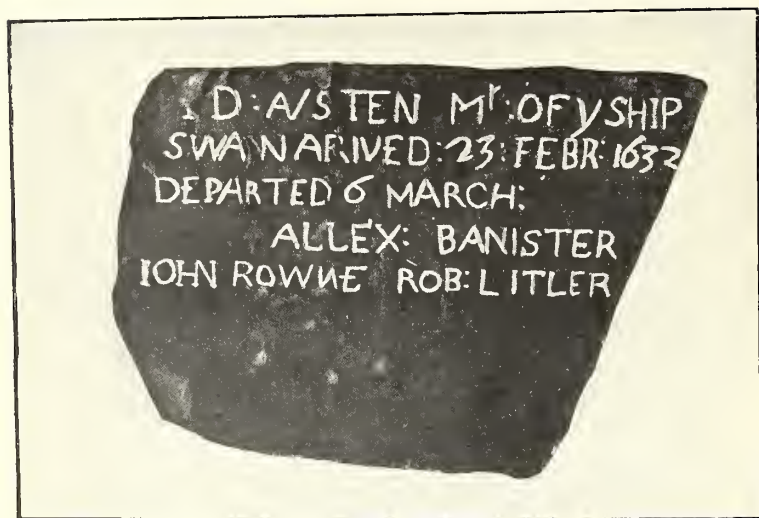 D: AVSTEN Mr: OF y SHIP
SWAN ARIVED: 23: FEBR: 1632
DEPARTED 6 MARCH:
ALLEX: BANISTER
IOHN ROWNE ROB: LITLER